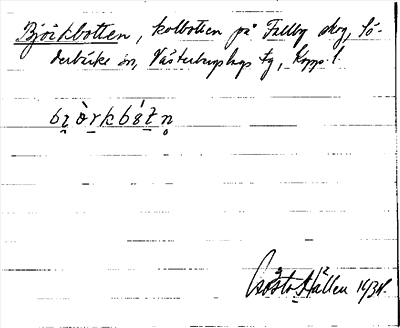 Björkbotten, kolbotten på Fallby skog, Sö-
derbärke sn, Västerbergslags tg, Kopp. l.
bi̯òrkbót̯n̥
Gösta Hållen 1934.